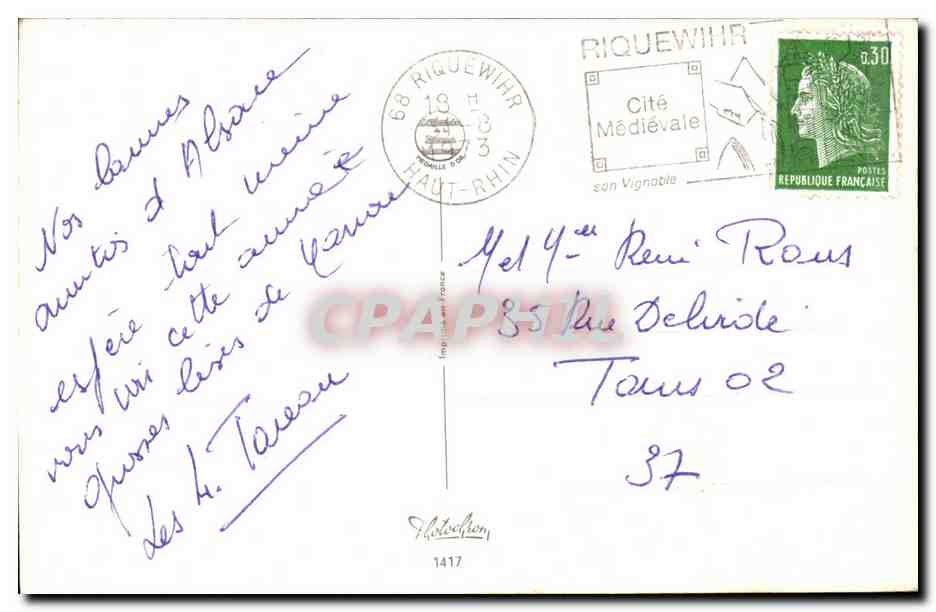 Nos bonnes
amitiés d'Alsace
espère tout même
vous voir cette année
grosses bises de
Les
RIQUEWIHR
Cité
Médiévale
son Vignoble
68 RIQUEWIHR
18 H
8
3
HAUT-RHIN
MEDAILLE D'OR
0,30
POSTES
REPUBLIQUE FRANÇAISE
M et Mme René Rous
35 Rue
Tours 02
37
CPAPHIL
Imprimé en France
Photochrom
1417